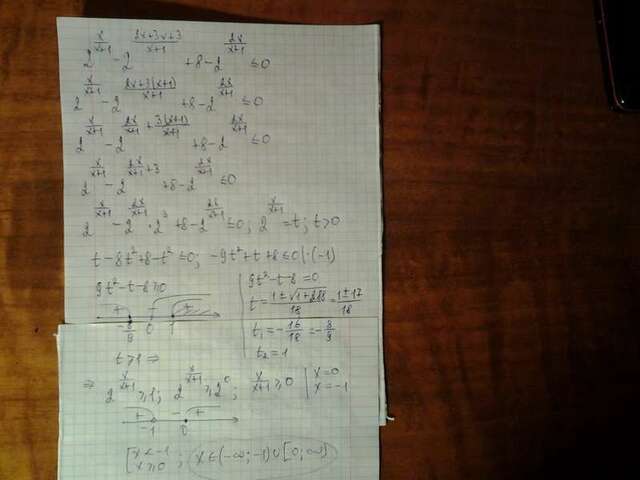 2^(x/(x+1)) - 2^((2x+3x+3)/(x+1)) + 8 - 2^(2x/(x+1)) ≤ 0
2^(x/(x+1)) - 2^((2x+3(x+1))/(x+1)) + 8 - 2^(2x/(x+1)) ≤ 0
2^(x/(x+1)) - 2^(2x/(x+1) + 3(x+1)/(x+1)) + 8 - 2^(2x/(x+1)) ≤ 0
2^(x/(x+1)) - 2^(2x/(x+1) + 3) + 8 - 2^(2x/(x+1)) ≤ 0
2^(x/(x+1)) - 2^(2x/(x+1)) · 2^3 + 8 - 2^(2x/(x+1)) ≤ 0; 2^(x/(x+1)) = t; t > 0
t - 8t² + 8 - t² ≤ 0; -9t² + t + 8 ≤ 0 | · (-1)
9t² - t - 8 ≥ 0
+ - +
-8/9 0 1
t ≥ 1 ⇒
9t² - t - 8 = 0
t = (1 ± √(1+288))/18 = (1 ± 17)/18
t₁ = -16/18 = -8/9
t₂ = 1
⇒ 2^(x/(x+1)) ≥ 1; 2^(x/(x+1)) ≥ 2^0; x/(x+1) ≥ 0 | x = 0
x = -1
+ - +
-1 0
[ x < -1
x ≥ 0 ; x ∈ (-∞; -1) ∪ [0; ∞)